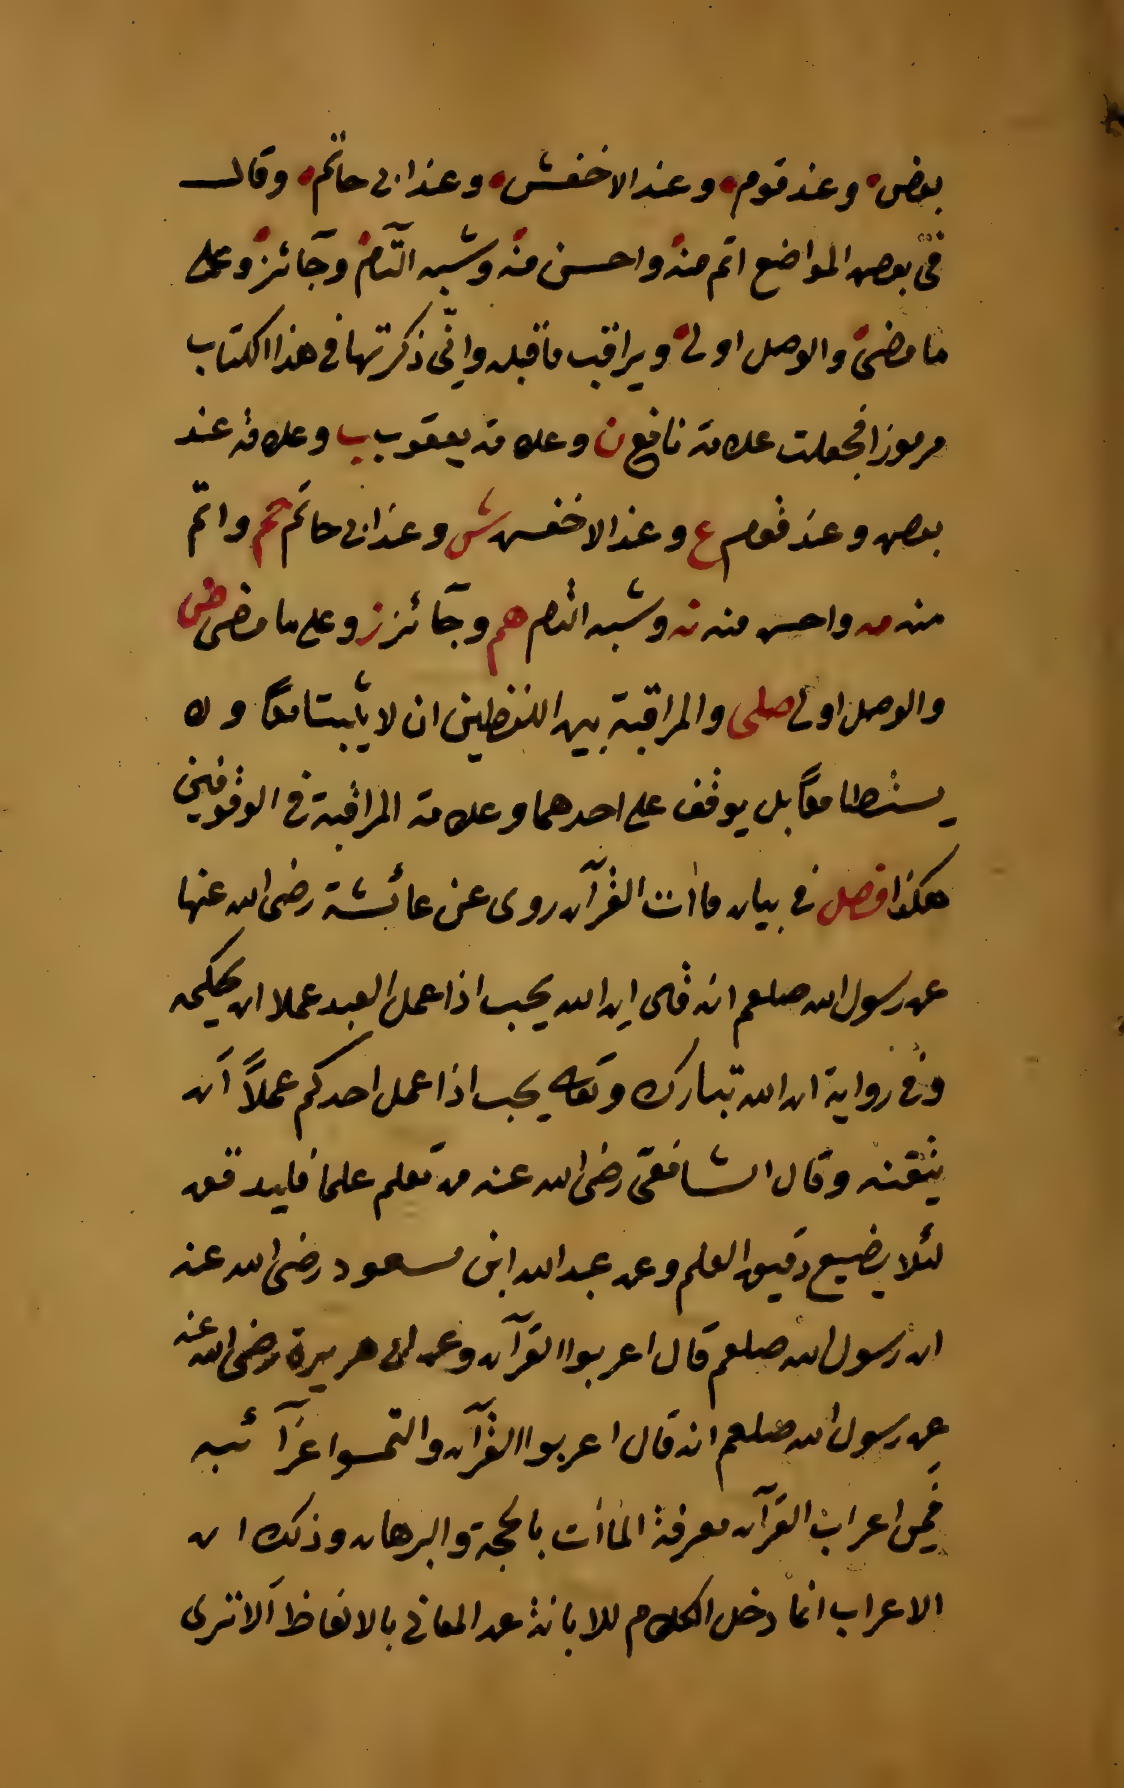 بعض وعند قوم وعند الاخفش وعند ابى حاتم وقال
فى بعض المواضع اتم منه واحسن منه وشبه التام وجآئز وعلى
ما مضى والوصل اولى ويراقب ماقبله وانى ذكرتها فى هذا الكتاب
مرموزا فجعلت علامة نافع ن وعلامة يعقوب ب وعلامة عند
بعض وعند قوم ع وعند الاخفش ش وعند ابى حاتم حم واتم
منه مه واحسن منه نه وشبه التام هم وجآئز ز وعلى ما مضى ضى
والوصل اولى صلى والمراقبة بين اللفظين ان لا يثبتا معًا ولا
يسقطا معًا بل يوقف على احدهما وعلامة المراقبة فى الوقوفين
هكذا فصل فى بيان ماات القرآن روى عن عائشة رضى الله عنها
عن رسول الله صلعم انه قال ان الله يحب اذا عمل العبد عملا ان يحكمه
وفى رواية ان الله تبارك وتعالى يحب اذا عمل احدكم عملاً ان
يتقنه وقال الشافعى رضى الله عنه من تعلم علما فليدقق
لئلا يضيع دقيق العلم وعن عبد الله ابن مسعود رضى الله عنه
ان رسول الله صلعم قال اعربوا القرآن وعن ابى هريرة رضى الله عنه
عن رسول الله صلعم انه قال اعربوا القرآن والتمسوا غرآئبه
فمن اعراب القرآن معرفة الماات بالحجة والبرهان وذلك ان
الاعراب انما دخل الكلام للابانة عن المعانى بالالفاظ الا ترى